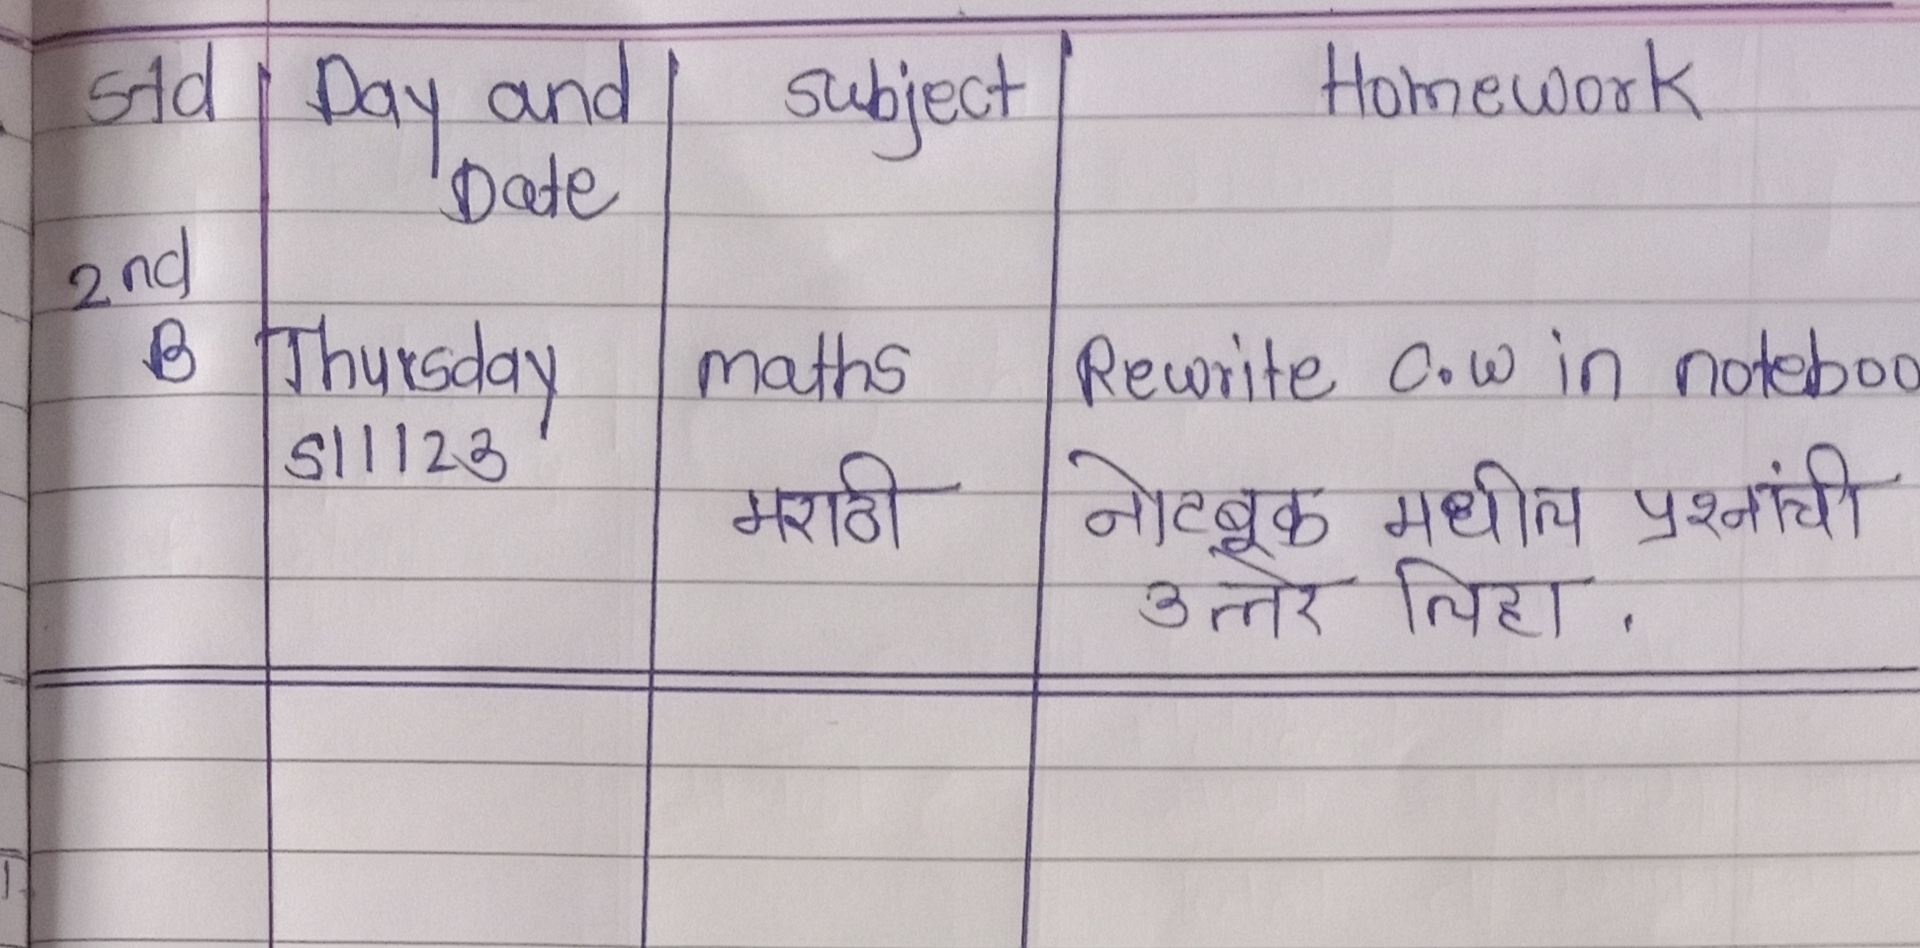 Std Day and subject Homework
Date
2nd
B Thursday maths Rewrite C.w in noteboo
5/1/23
मराठी नोटबूक मधील प्रश्नांची
उत्तरे लिहा.